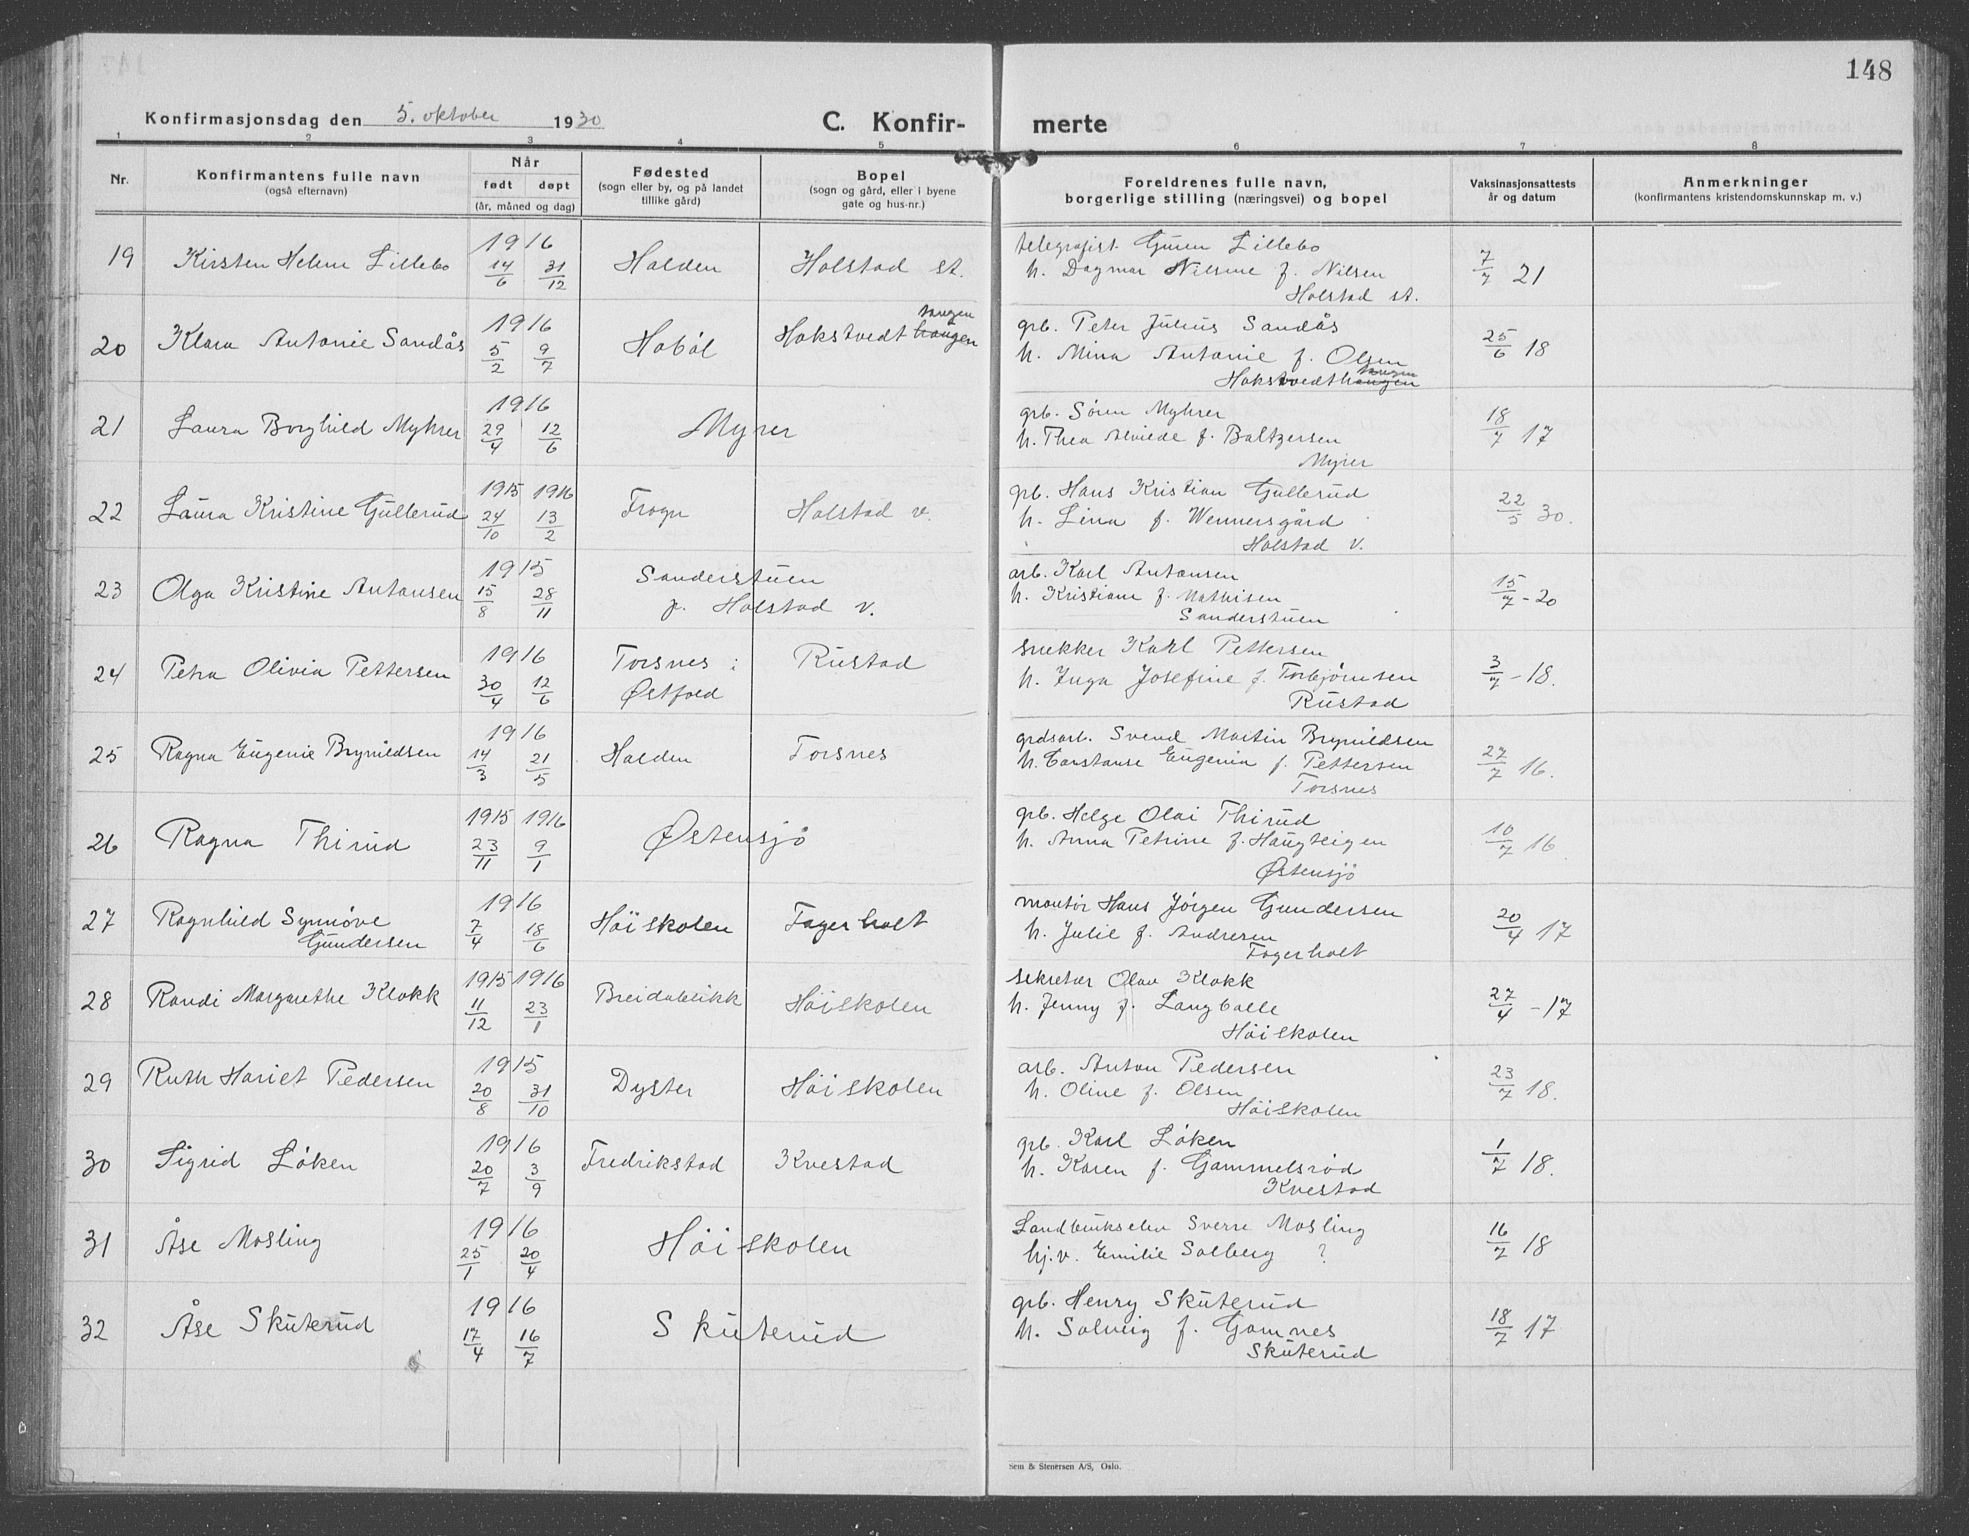 148
Konfirmasjonsdag den 5. oktober 1930 C. Konfir- merte
1 2 3 4 5 6 7 8
Nr. Konfirmantens fulle navn (også efternavn) Når født døpt (år, måned og dag) Fødested (sogn eller by, og på landet tillike gård) Bopel (sogn og gård, eller i byene gate og hus-nr.) Foreldrenes fulle navn, borgerlige stilling (næringsvei) og bopel Vaksinasjonsattests år og datum Anmerkninger (konfirmantens kristendomskunnskap m. v.)
19 Kirsten Helene Lillebo 1916 14/6 31/12 Halden Holstad st. telegrafist Lillebo
h. Dagmar Nilsine f. Nilsen 7/7 21
Holstad st.
20 Klara Antonie Sandås 1916 5/2 9/7 Hobøl Hakstvedt haugen tangen grb. Peter Julius Sandås
h. Mina Antonie f. Olsen 25/6 18
Hakstvedthaugen tangen
21 Laura Borghild Myhrer 1916 29/4 12/6 Myrer grb. Sören Myhrer
h. Thea Alvilde f. Baltzersen 18/7 17
Myrer
22 Laura Kristine Gullerud 1915 24/10 1916 13/2 Frogn Holstad v. grb. Hans Kristian Gullerud
h. Lina f. Wennersgård 22/5 30.
Holstad v.
23 Olga Kristine Antonsen 1915 15/8 28/11 Sanderstuen
p. Holstad v. arb. Karl Antonsen
h. Kristiane f. Mathisen 15/7 - 20
Sanderstuen
24 Petra Olivia Pettersen 1916 30/4 12/6 Torsnes i Østfold Rustad snekker Karl Pettersen
h. Inga Josefine f. Torbjørnsen 3/7 - 18.
Rustad
25 Ragna Eugenie Brynildsen 1916 14/3 21/5 Halden Torsnes grdsarb. Svend Martin Brynildsen
h. Constanse Eugenia f. Pettersen 27/7 16.
Torsnes
26 Ragna Thirud 1915 23/11 1916 9/1 Østensjø grb. Helge Olai Thirud
h. Anna Petrine f. Haugteigen 10/7 16
Østensjø
27 Ragnhild Synnøve Gundersen 1916 7/4 18/6 Høiskolen Fagerholt montör Hans Jörgen Gundersen
h. Julie f. Andresen 20/4 17
Fagerholt
28 Randi Margarethe Klokk 1915 11/12 1916 23/1 Breidablikk Høiskolen sekretær Olav Klokk
h. Jenny f. Langballe 27/4 - 17
Høiskolen
29 Ruth Hariet Pedersen 1915 20/8 31/10 Dyster Høiskolen arb. Anton Pedersen
h. Oline f. Olsen 23/7 18.
Høiskolen
30 Sigrid Løken 1916 20/7 3/9 Fredrikstad Kvestad grb. Karl Løken
h. Karen f. Gammelsrød 1/7 18.
Kvestad
31 Åse Mosling 1916 25/1 20/4 Høiskolen Landbrukselev Sverre Mosling
hj.v. Emilie Solberg ? 16/7 18
32 Åse Skuterud 1916 17/4 16/7 Skuterud grb. Henry Skuterud
h. Solveig f. Gamnes 18/7 17
Skuterud
Sem & Stenersen A/S, Oslo.